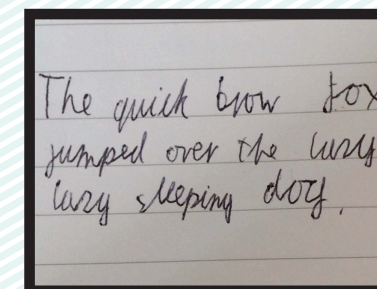 The quick brow fox
jumped over the lazy
lazy sleeping dog.